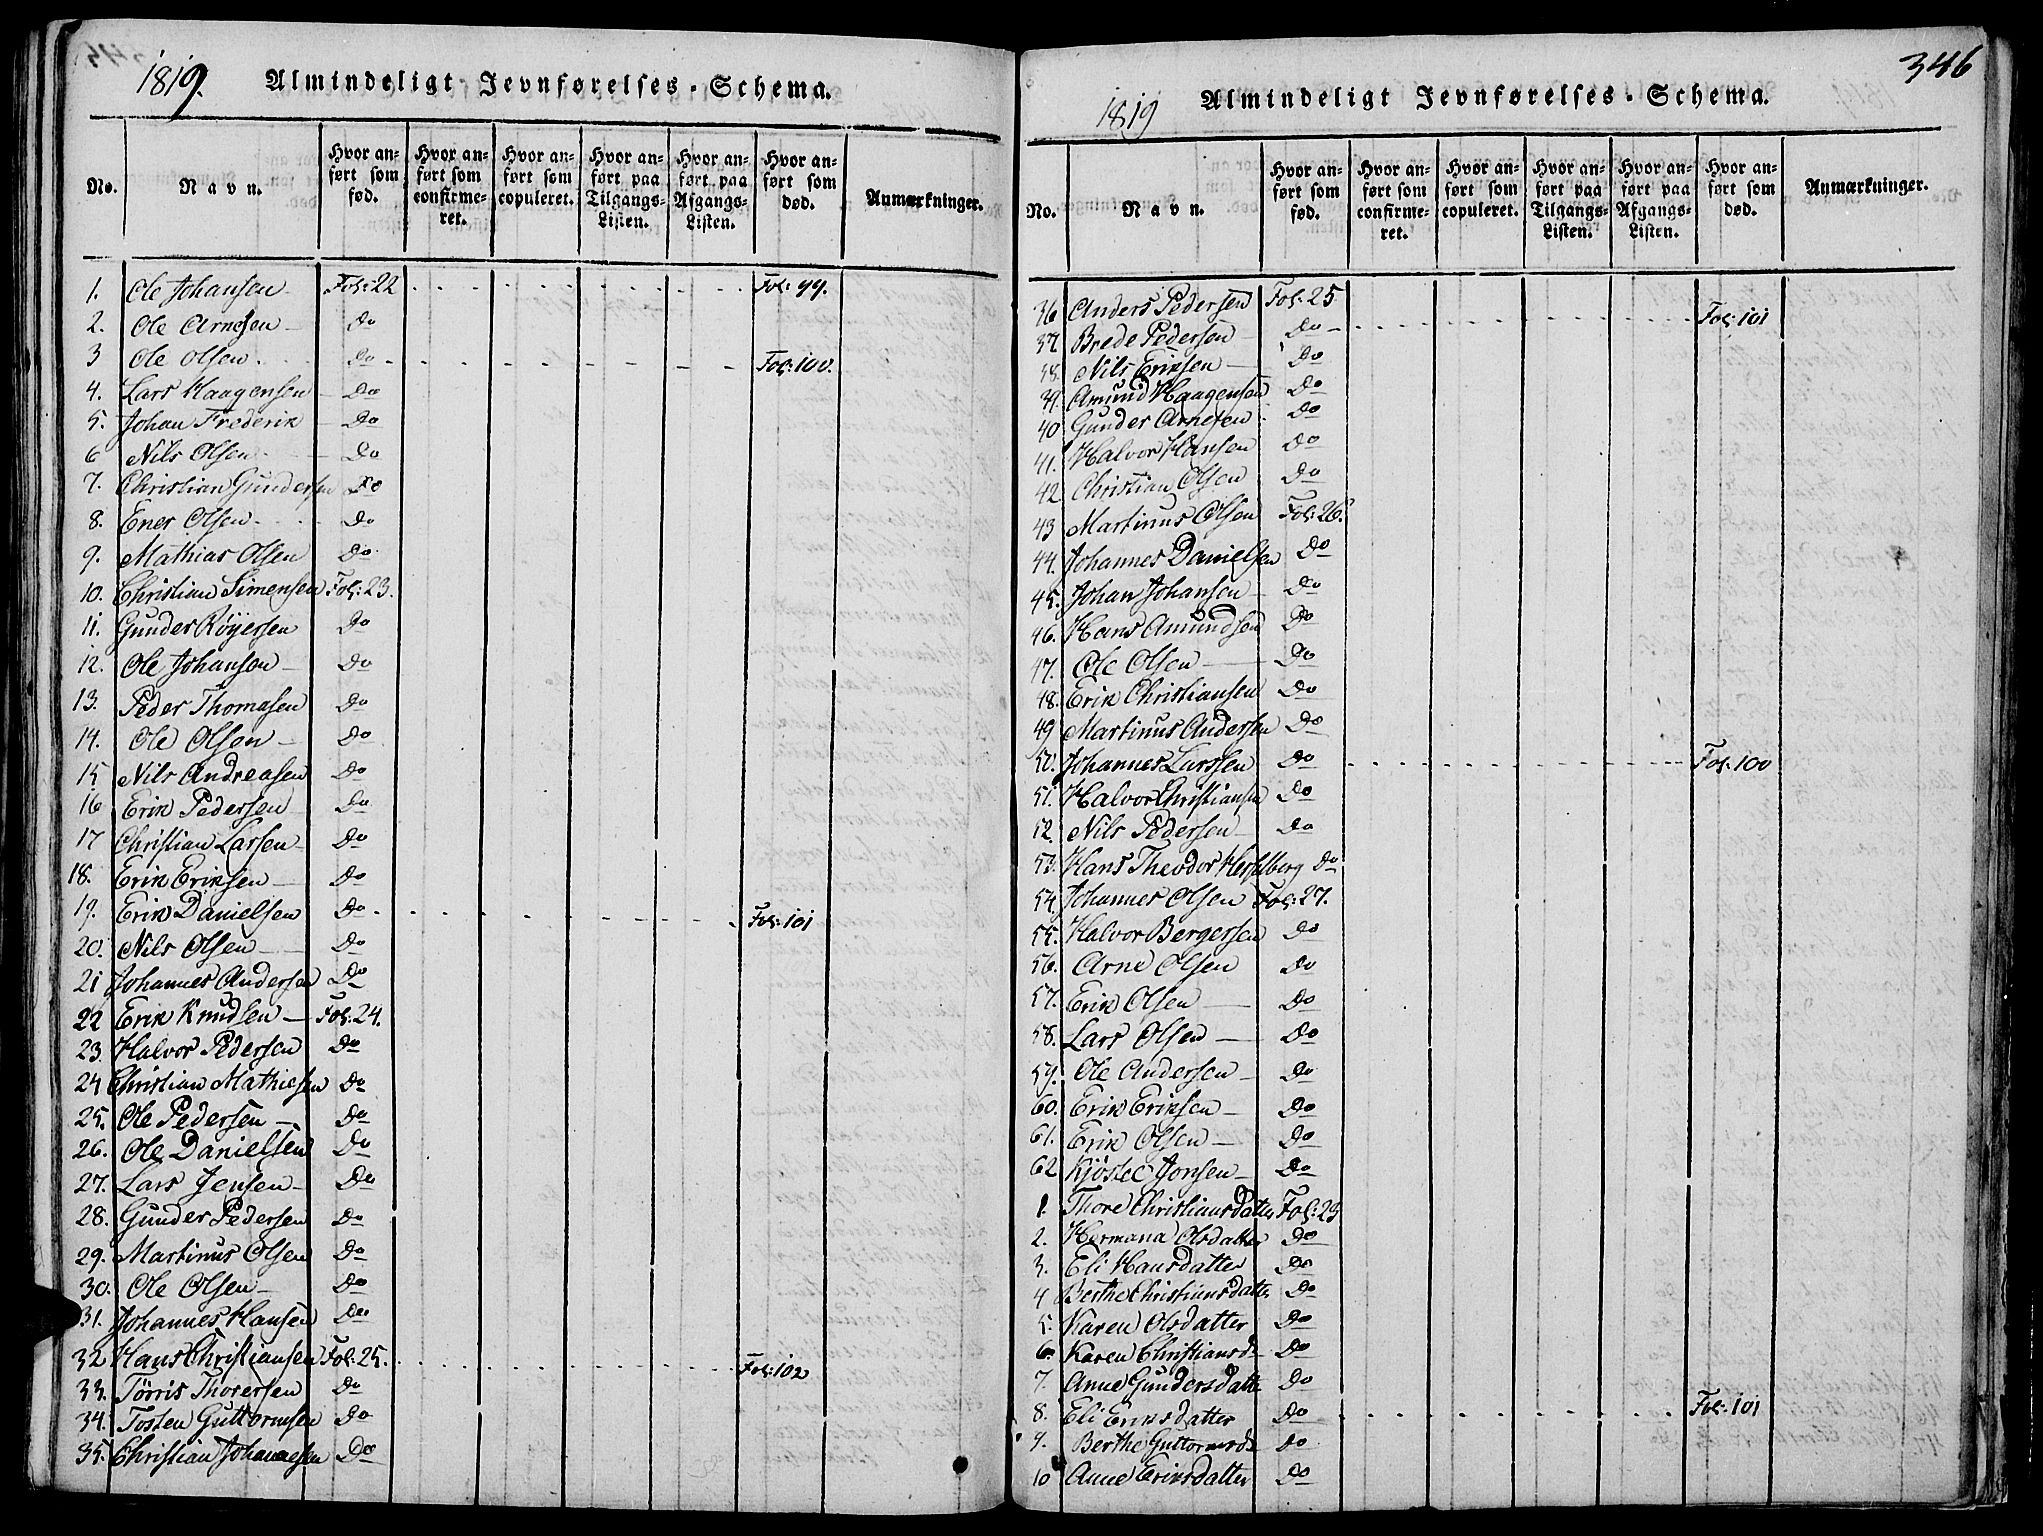 1819. Almindeligt Jevnførelses-Schema.
No. Navn. Hvor anført som fød. Hvor anført som confirmeret. Hvor anført som copuleret. Hvor anført paa Tilgangs-Listen. Hvor anført paa Afgangs-Listen. Hvor anført som død. Anmærkninger.
1. Ole Johansen Fol: 22 Fol: 99.
2. Ole Arnesen Do
3 Ole Olsen Do Fol: 100.
4. Lars Haagensen Do
5. Johan Frederik Do
6 Nils Olsen Do
7. Christian Gundersen Do
8. Ener Olsen Do
9. Mathias Olsen Do
10. Christian Simensen Fol: 23.
11. Gunder Röyersen Do
12. Ole Johansen Do
13. Peder Thomesen Do
14. Ole Olsen Do
15 Nils Andreasen Do
16 Erik Pedersen Do
17 Christian Larsen Do
18. Erik Eriksen Do
19. Erik Danielsen Do Fol: 101
20. Nils Olsen Do
21 Johannes Andersen Do
22 Erik Knudsen Fol: 24.
23. Halvor Pedersen Do
24 Christian Mathiesen Do
25. Ole Pedersen Do
26. Ole Danielsen Do
27. Lars Jensen Do
28. Gunder Pedersen Do
29. Martinus Olsen Do
30. Ole Olsen Do
31. Johannes Hansen Do
32 Hans Christiansen Fol: 25. Fol: 102
33. Törris Thoresen Do
34. Tosten Guttormsen Do
35. Christian Johannesen Do
346
1819 Almindeligt Jevnførelses-Schema.
No. Navn. Hvor anført som fød. Hvor anført som confirmeret. Hvor anført som copuleret. Hvor anført paa Tilgangs-Listen. Hvor anført paa Afgangs-Listen. Hvor anført som død. Anmærkninger.
36 Anders Pedersen Fol: 25
37. Brede Pedersen Do Fol: 101
38. Nils Eriksen Do
39. Amund Haagensen Do
40 Gunder Arnesen Do
41. Halvor Hansen Do
42 Christian Olsen Do
43 Martinus Olsen Fol: 26.
44. Johannes Danielsen Do
45. Johan Johansen Do
46. Hans Amundsen Do
47. Ole Olsen Do
48. Erik Christiansen Do
49 Martinus Andersen Do
50. Johannes Larssen Do Fol: 100
51. Halvor Christiansen Do
52 Nils Pedersen Do
53. Hans Theodor Hesselberg Do
54. Johannes Olsen Fol: 27.
55. Halvor Bergersen Do
56. Arne Olsen Do
57. Erik Olsen Do
58. Lars Olsen Do
59. Ole Andersen Do
60. Erik Eriksen Do
61. Erik Olsen Do
62 Kjöstel Jonsen Do
1. Thore Christiansdatter Fol: 23
2. Hermana Olsdatter Do
3. Eli Hansdatter Do
4 Berthe Christiansdatter Do
5. Karen Olsdatter Do
6. Karen Christiansd. Do
7. Anne Gundersdatter Do
8. Eli Eriksdatter Do Fol: 101
9. Berthe Guttormsd. Do
10 Anne Eriksdatter Do